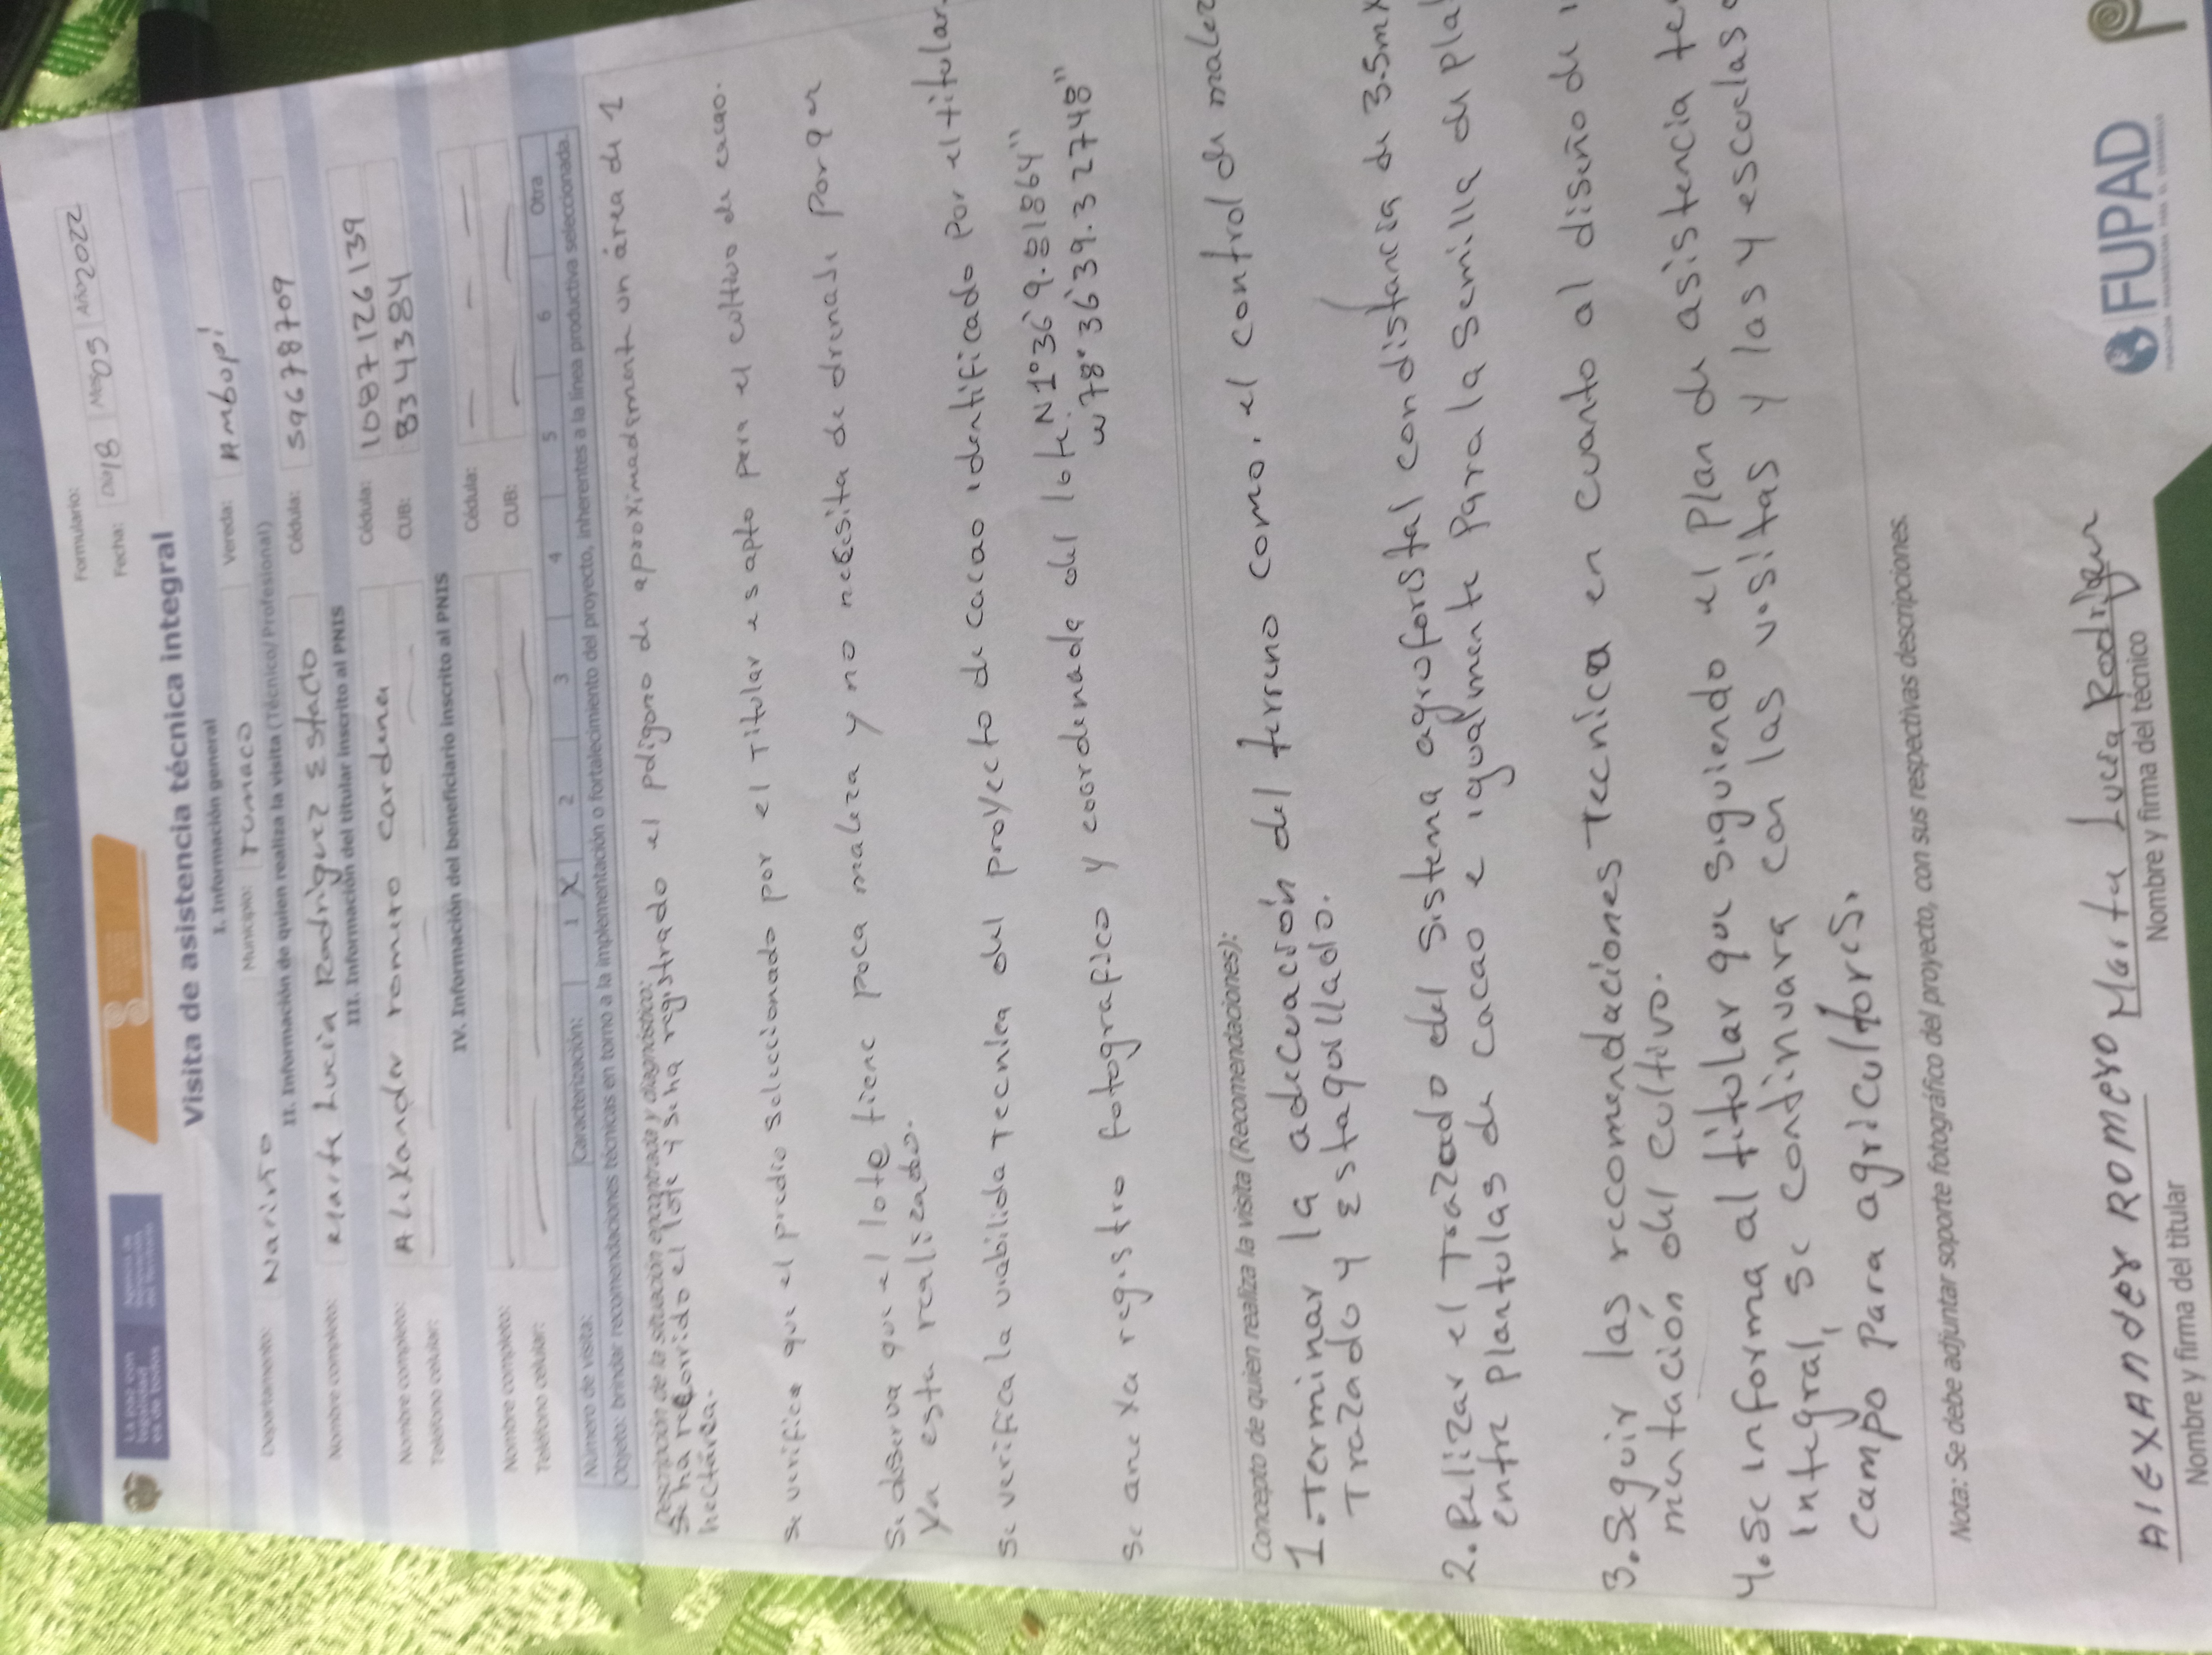 La paz con
legalidad
es de todos
Formulario:
Fecha: Día 18 Mes 05 Año 2022
Visita de asistencia técnica integral
I. Información general
Departamento: Nariño Municipio: Tumaco Vereda: Ambopi
II. Información de quien realiza la visita (Técnico/Profesional)
Nombre completo: Marta Lucia Rodriguez Estado Cédula: 59678709
III. Información del titular inscrito al PNIS
Nombre completo: Alexander romero cardena Cédula: 1087126139
Teléfono celular: CUB: 8343384
IV. Información del beneficiario inscrito al PNIS
Nombre completo: Cédula:
Teléfono celular: CUB:
Número de visita: Caracterización: 1 X 2 3 4 5 6 Otra
Objeto: brindar recomendaciones técnicas en torno a la implementación o fortalecimiento del proyecto, inherentes a la línea productiva seleccionada.
Descripción de la situación encontrada y diagnóstico:
Se ha recorrido el lote y se ha registrado el poligono de aproximadamente un área de 1
hectárea.
se verifica que el predio seleccionado por el Titular es apto para el cultivo de cacao.
Se observa que el lote tiene poca maleza y no necesita de drenaje porque
ya esta realizado.
Se verifica la viabilida Tecnica del proyecto de cacao identificado por el titular.
Se anexa registro fotografico y coordenada del lote: N1°36'9.81864"
w78°36'39.32748"
Concepto de quien realiza la visita (Recomendaciones):
1. Terminar la adecuación del terreno como, el control de malez
Trazado y Estaquillado.
2. Relizar el Trazado del sistema agroforestal con distancia de 3.5mx
entre plantulas de cacao e igualmente para la semilla de pla
3. Seguir las recomendaciones Tecnica en cuanto al diseño de
mentación del cultivo.
4. Se informa al titular que siguiendo el plan de asistencia te
integral, se condinuara con las visitas y las escuelas
Campo para agricultores.
Nota: Se debe adjuntar soporte fotográfico del proyecto, con sus respectivas descripciones.
AlexAnder Romero Marta Lucia Rodriguez
Nombre y firma del titular Nombre y firma del técnico
FUPAD